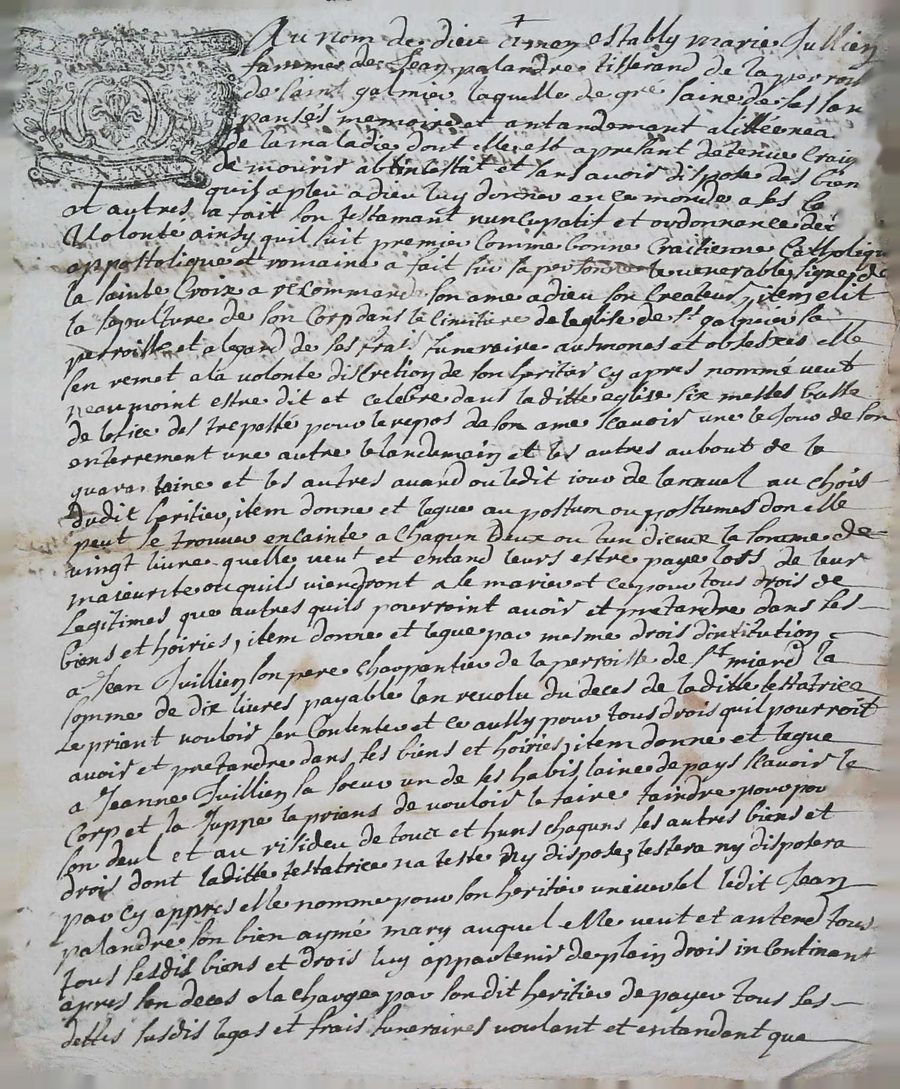 Au nom de dieu Amen establÿ marie Jullien
famme de Jean palandre tisserand de la perroisse
de saint galmier laquelle de gre saine de ses san
pansés memoire et antandemant alittée
de la maladie dont elle est apresant detenue craig
de mourir abtintestat et sans avoir dispose des bien
quil a pleu a dieu luy donner en ce monde a ses
et autres, a fait son testamant nuncupatif et ordonnance de
volonte ainsy quil suit premier comme bonne Craitienne Catholique
appostolique et romaine a fait sur sa personne le venerable signe de
la sainte Croix a recommande son ame a dieu son Createur, item elit
la sepulture de son Corp dans le Cimitiere de leglise de st galmier sa
perroisse et a legard de ses frais funeraire aumones et obseseis elle
sen remet a la volonte discretion de son heritier cy apres nommé veut
neaumoint estre dit et celebre dans la ditte eglise six messes basse
de lofice des trepassé pour le repos de son ame scavoir une le jour de son
enterrement une autre le landemain et les autres au bout de la
quarantaine et les autres avand ou ledit jour de lannuel au chois
dudit heritier, item donne et legue au postum ou postumes don elle
peut se trouver encainte a chaqun deux ou lun dieux la somme de
vingt livre quelle veut et entand leurs estre paye lors de leur
majeurite ou quils viendront a se marier et ce pour tous drois de
Legitimes que autres quils pourroint avoir et pretandre dans ses
biens et hoiries, item donne et legue par mesme drois dintitution
a Jean Juillien son pere charpantier de la perroisse de st miard la
somme de dix livres payable lan revolu du deces de laditte testatrice
le priant vouloir sen Contenter et ce aussy pour tous drois quil pourroit
avoir et pretandre dans, ses biens et hoiries, item donne et legue
a Jeanne Juillien sa soeur un de ses habis laine de pays scavoir le
Corp et la Juppe la priant de vouloir le faire taindre pour pour
son deul et au resideu de tout et huns chaquns ses autres biens et
drois dont laditte testatrice na teste ny dispose, testera ny disposera
par cy appres elle nomme pour son heritier universel ledit Jean
palandre son bien aymé mary auquel elle veut et antend tous
tous sesdis biens et drois luy appartenir de plain drois incontinant
apres son deces a la charge par sondit heritier de payer tous ses
dettes susdis legas et frais funeraires voulant et entandant que